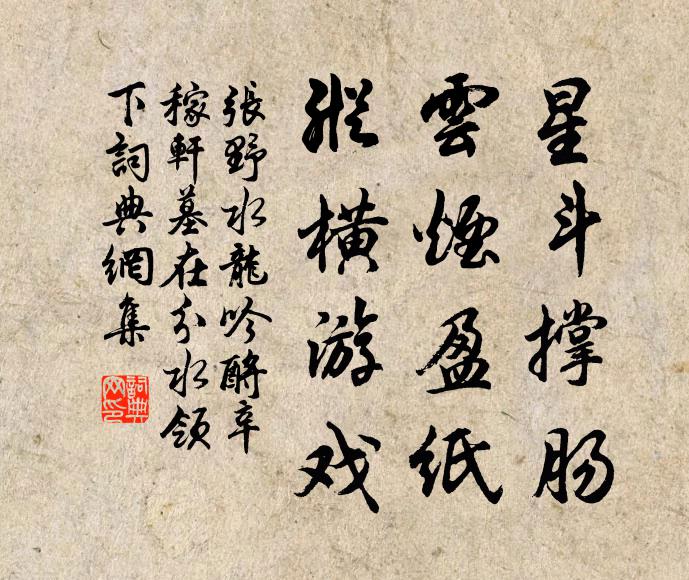 星斗撐肠
雲煙盈紙
縱橫游戏
張野水龍吟酹辛
稼軒墓在分水領
下詞典網集
詞典网印